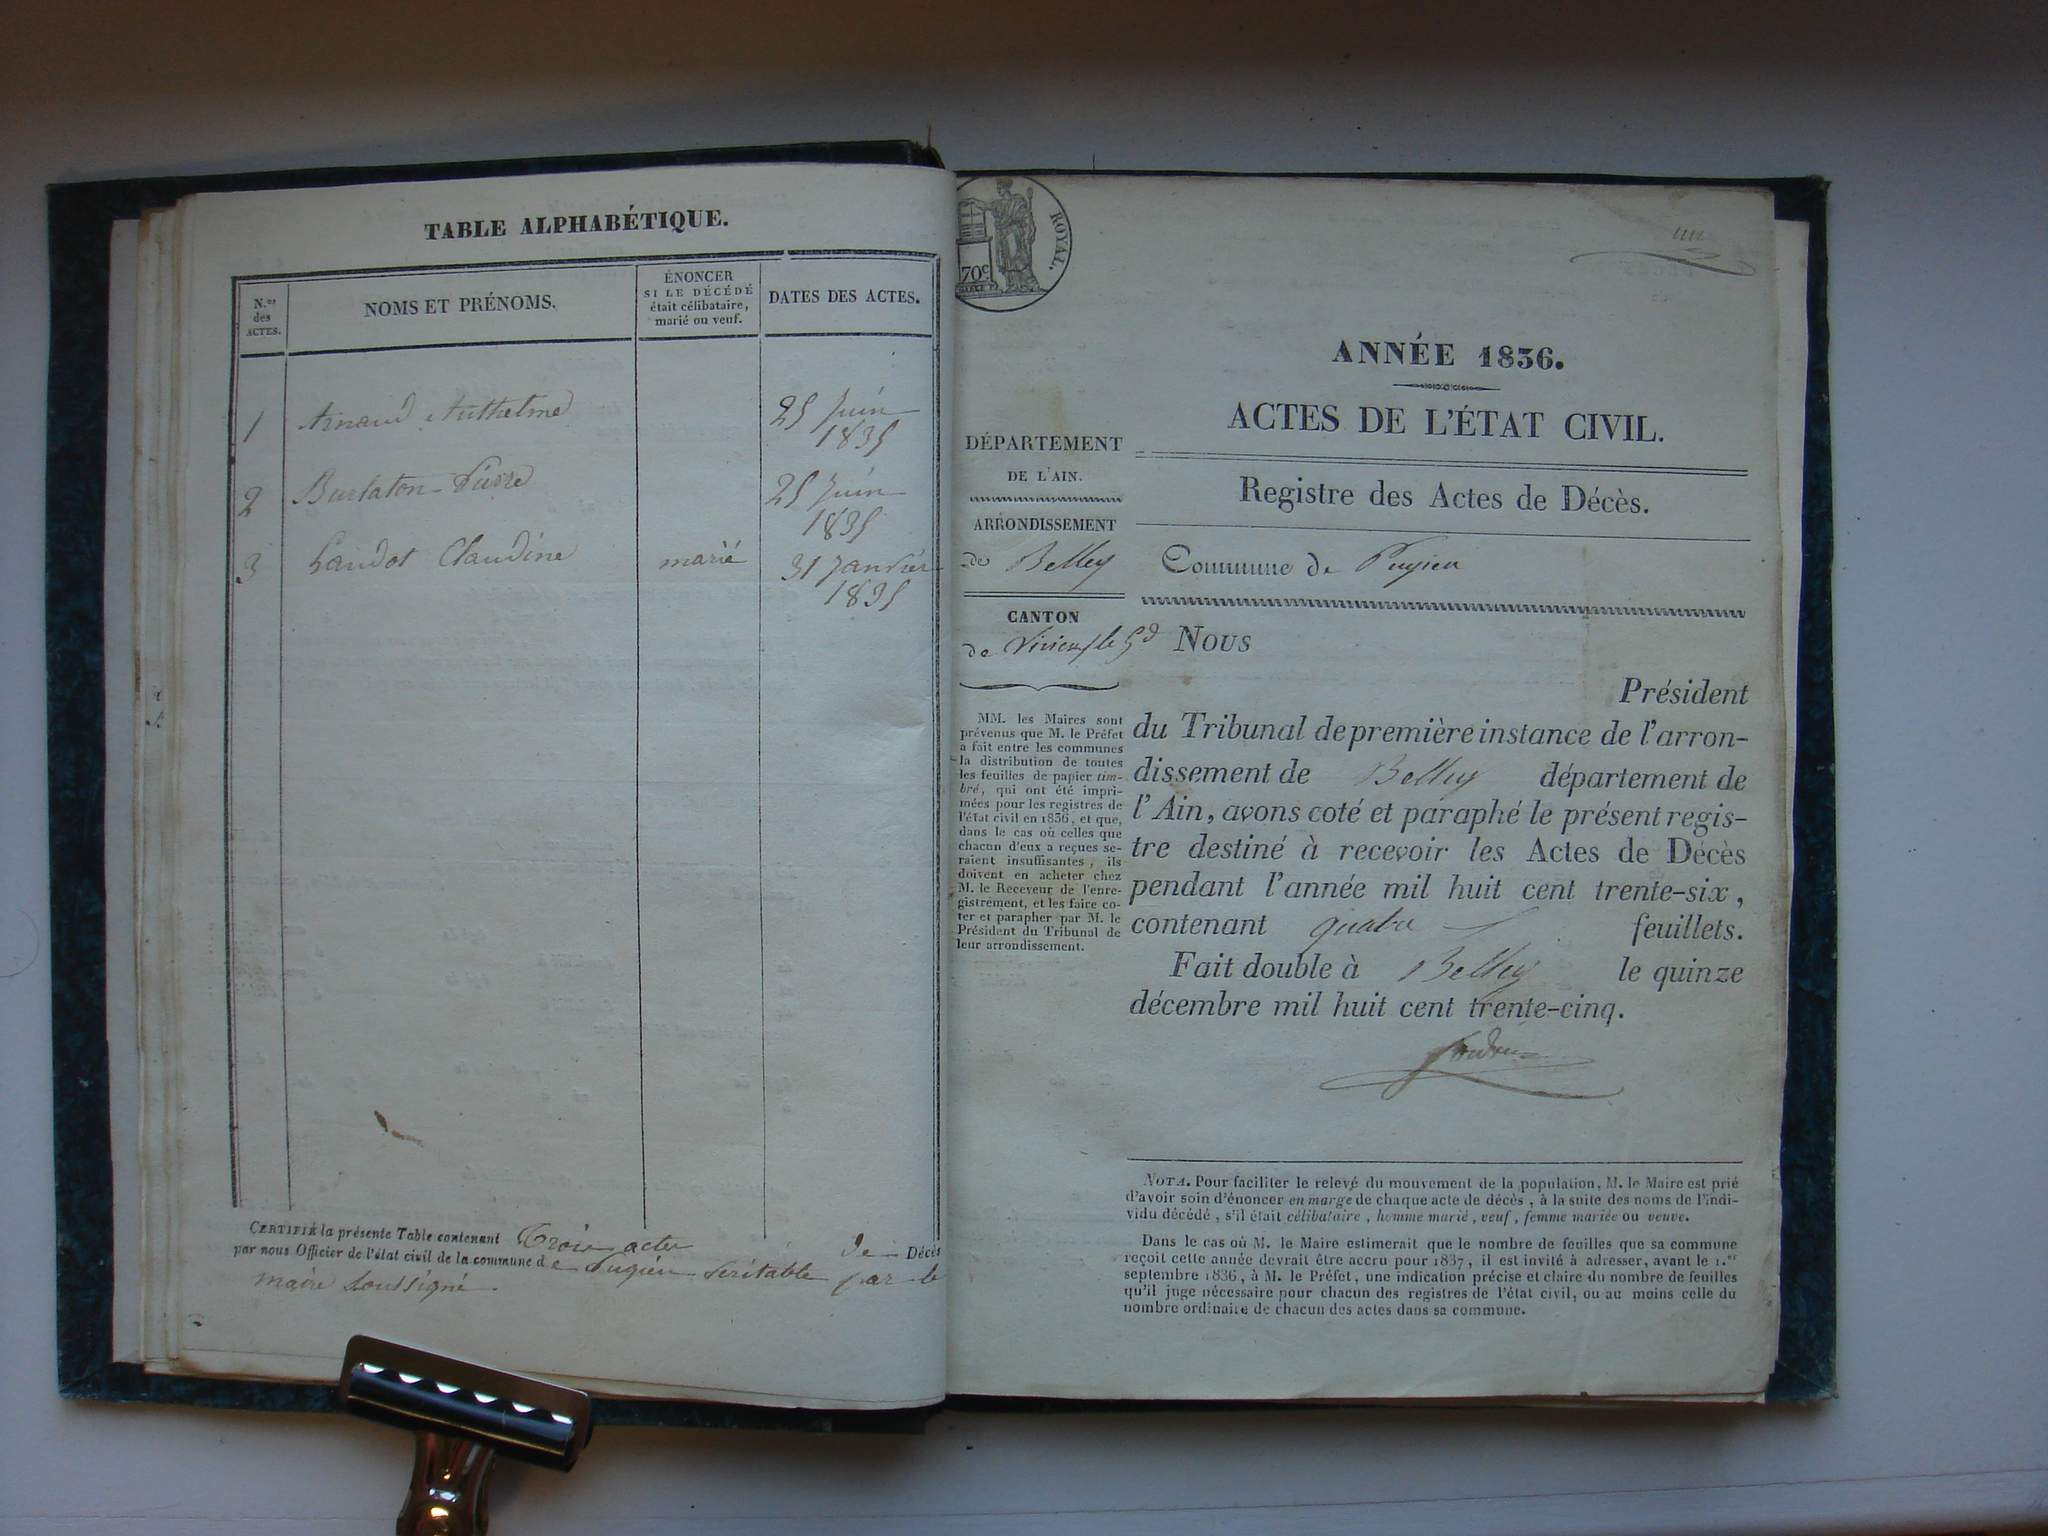 TABLE ALPHABÉTIQUE.
N.os des ACTES.
NOMS ET PRÉNOMS.
ÉNONCER
SI LE DÉCÉDÉ
était célibataire,
marié ou veuf.
DATES DES ACTES.
1 Arnaud Anthelme 25 Juin
1835
2 Burlaton Pierre 25 Juin
1835
3 Landot Claudine marié 31 Janvier
1835
CERTIFIÉ la présente Table contenant Trois actes de Décès
par nous Officier de l'état civil de la commune de Pugieu véritable par le
maire soussigné
ROYAL.
70c
un
ANNÉE 1836.
ACTES DE L'ÉTAT CIVIL.
DÉPARTEMENT
DE L'AIN.
Registre des Actes de Décès.
ARRONDISSEMENT
de Belley
Commune de Pugieu
CANTON
de Virieu le Gd
MM. les Maires sont
prévenus que M. le Préfet
a fait entre les communes
la distribution de toutes
les feuilles de papier tim-
bré, qui ont été impri-
mées pour les registres de
l'état civil en 1836, et que,
dans le cas où celles que
chacun d'eux a reçues se-
raient insuffisantes, ils
doivent en acheter chez
M. le Receveur de l'enre-
gistrement, et les faire co-
ter et parapher par M. le
Président du Tribunal de
leur arrondissement.
NOUS
Président
du Tribunal de première instance de l'arron-
dissement de Belley département de
l'Ain, avons coté et paraphé le présent regis-
tre destiné à recevoir les Actes de Décès
pendant l'année mil huit cent trente-six,
contenant quatre feuillets.
Fait double à Belley le quinze
décembre mil huit cent trente-cinq.
NOTA. Pour faciliter le relevé du mouvement de la population, M. le Maire est prié
d'avoir soin d'énoncer en marge de chaque acte de décès, à la suite des noms de l'indi-
vidu décédé, s'il était célibataire, homme marié, veuf, femme mariée ou veuve.
Dans le cas où M. le Maire estimerait que le nombre de feuilles que sa commune
reçoit cette année devrait être accru pour 1837, il est invité à adresser, avant le 1.er
septembre 1836, à M. le Préfet, une indication précise et claire du nombre de feuilles
qu'il juge nécessaire pour chacun des registres de l'état civil, ou au moins celle du
nombre ordinaire de chacun des actes dans sa commune.